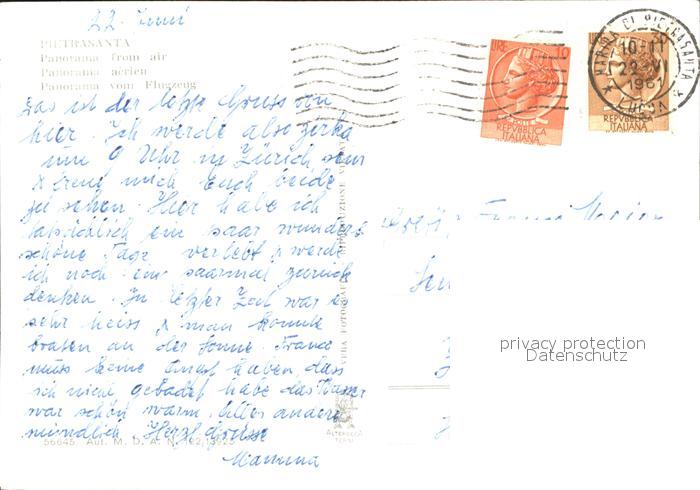 22. Juni
PIETRASANTA
Panorama from air
Panorama aérien
Panorama vom Flugzeug
Das ist der letzte Gruss von
hier. Ich werde also zirka
um 9 Uhr in Zürich sein
& freue mich Euch beide
zu sehen. Hier habe ich
tatsächlich ein paar wunder-
schöne Tage verlebt & werde
ich noch ein paarmal zurück
denken. In letzter Zeit war es
sehr heiss & man konnte
braten an der Sonne. Franco
muss keine Angst haben, dass
ich nicht gebadet habe das Wasser
war schön warm. Alles andere
mündlich. Herzl. Grüsse
Mamma
56645 Aut. M. D. A. N.
VERA FOTOGRAFIA
RIPRODUZIONE
LIRE 10
POSTE
REPVBBLICA
ITALIANA
REPVBBLICA
ITALIANA
MARINA DI PIETRASANTA
10-11
22 VI
196
LUCCA
privacy protection
Datenschutz